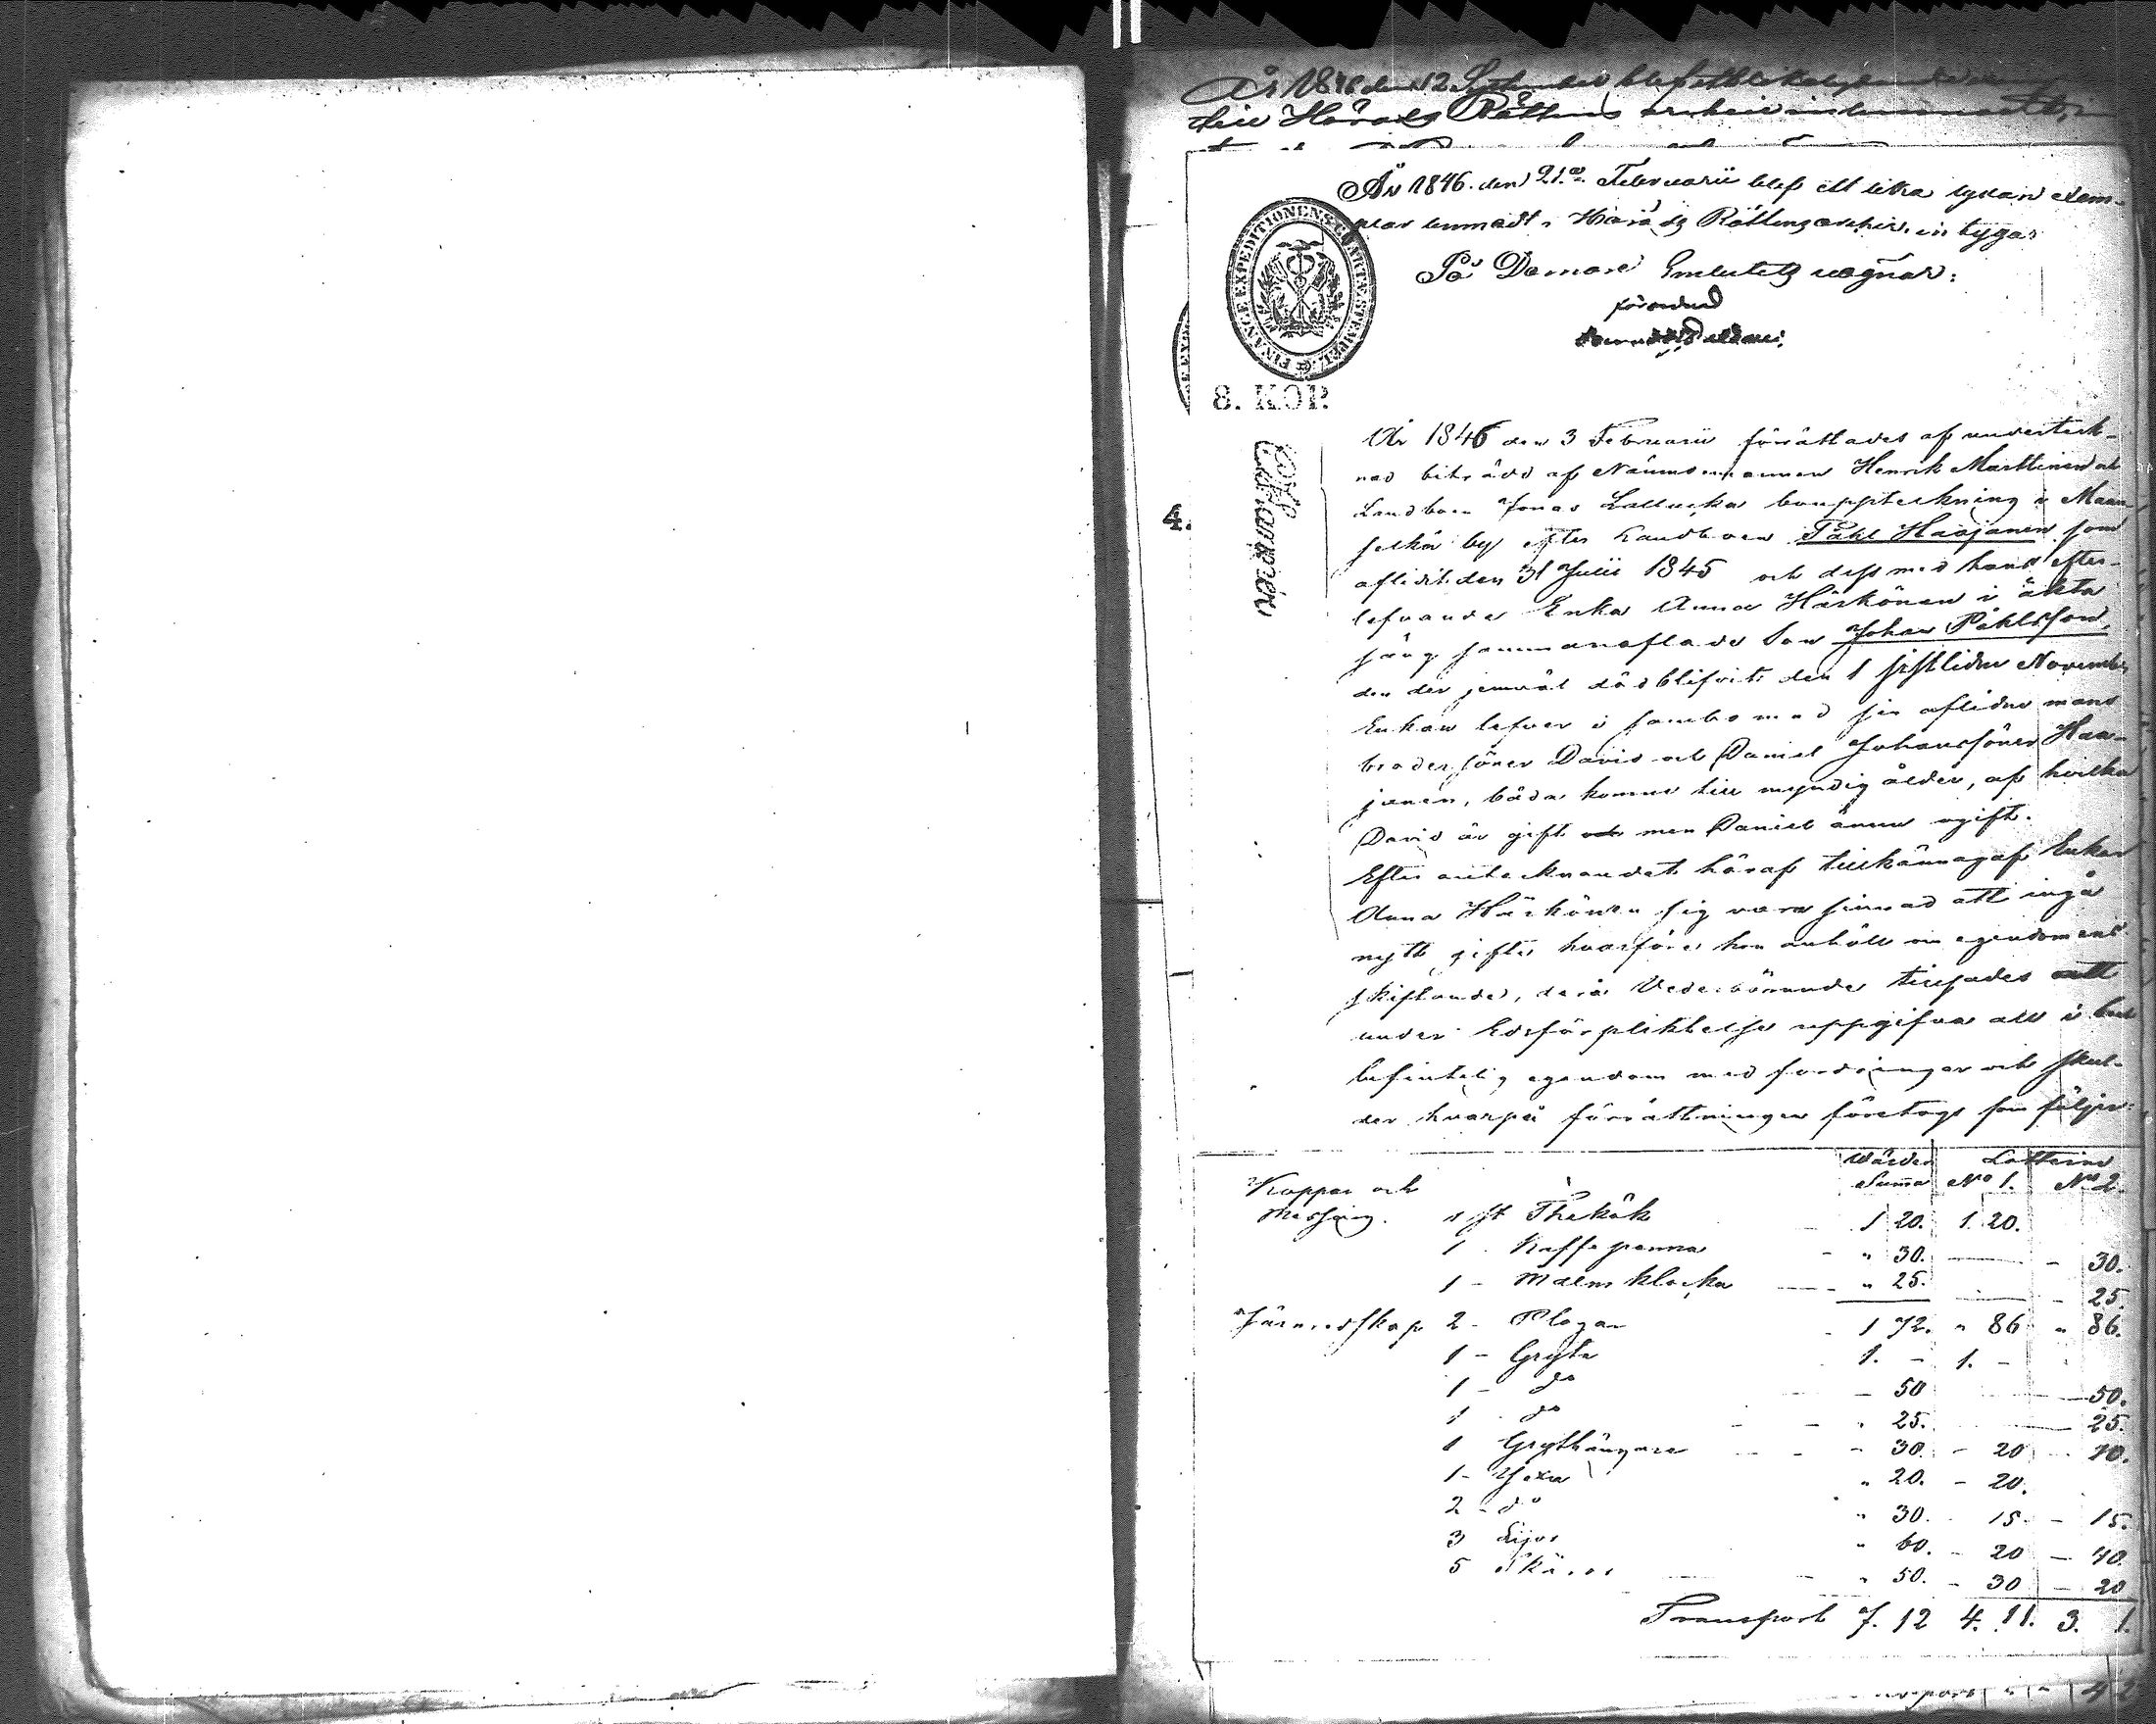 År 1846 den 12 September blef ett lika lydande
till Härads Rättens archiv inlemnadt,
År 1846. den 21.a Februarii blef ett lika lydand exem-
plar lemnadt i Härads Rättens archiv, intygar
På Domare Embetets vägnar:
FINANCE EXPEDITIONENS CHARTÆ STEMPEL
8. KOP.
4.
År 1846 den 3 Februarii förrättades af underteck-
nad biträdd af Nämndemannen Henrik Marttinen och
Landboen Jonas Lallucka bouppteckning i Maan
selkä by efter Landboen Påhl Haajanen som
aflidit den 31 Julii 1845 och dess med hans efter-
lefvande Enka Anna Härkönen i äkta
säng sammanaflade Son Johan Påhlsson,
den der jemväl död blifvit den 1 sistlidne November
Enkan lefver i sambo med sin aflidne mans
broders söner David och Daniel Johanssöner Haa-
janen, båda komne till myndig ålder, af hvilka
David är gift och men Daniel ännu ogift.
Efter antecknandet häraf tillkännagaf Enkan
Anna Härkönen sig vara sinnad att ingå
nytt gifte hvarföre hon anhöll om egendomens
skiftande, derå Vederbörande tillsades att
under Edsförpliktelse uppgifva all i boet
befintelig egendom med fordringar och skul-
der hvarpå förrättningen företogs som följer:
Värde Lotterne
Summa No 1. No 2.
Koppar och
Messing. 1 st Thekök 1 20. 1. 20.
1 Kaffe panna " 30. - 30.
1 - Malm klocka " 25. - 25.
Järnredskap 2 - Plogar 1 72. " 86 " 86.
1 - Gryta 1. - 1. -
1 - do - 50 50.
1 do " 25. 25.
1 Grythängare - 30. - 20 - 10.
1 - Yxa " 20. - 20.
2 - do " 30. 15 - 15.
3 Lijor " 60. - 20 - 40.
5 Skäror " 50. - 30 - 20
Transport 7. 12 4. 11. 3. 1.